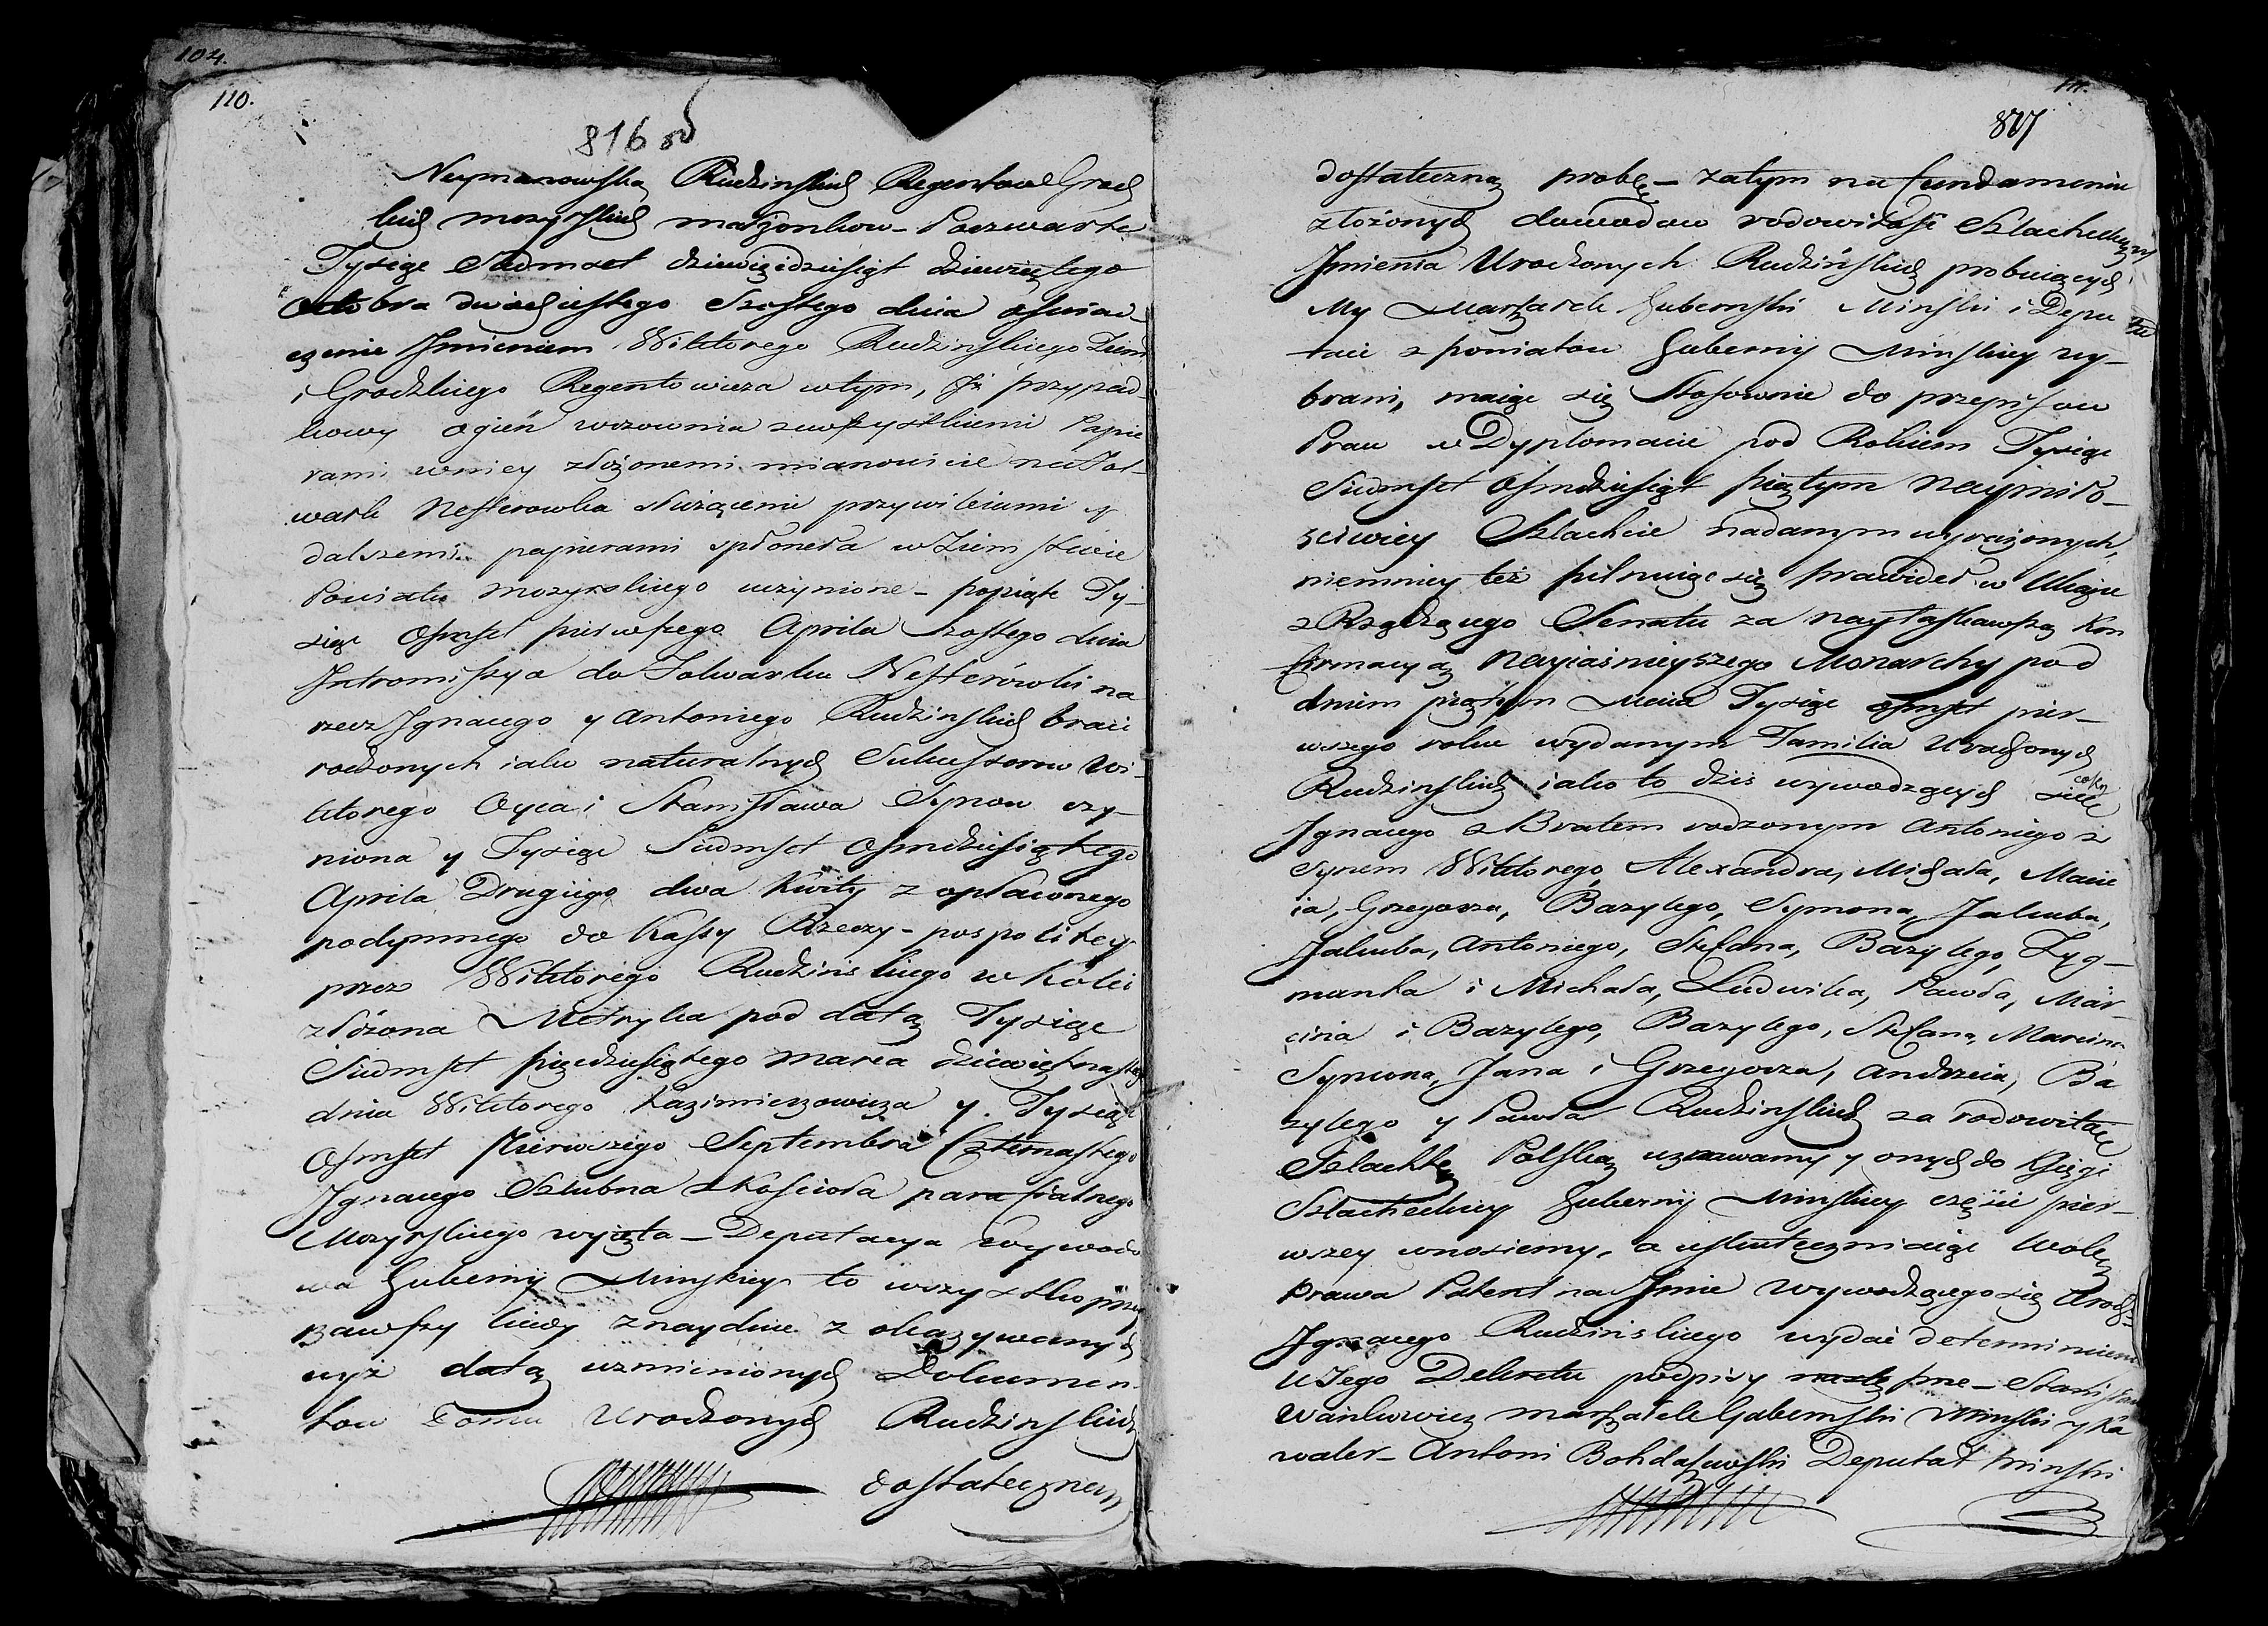 104.
110.
816 od
Neymanowską Rudzinskich Regentow Grod
kich mozyrskich małżonkow – Poczwarte
Tysiąc Siedmset dziewięćdziesiąt dziewiątego
Oktobra dwudziestego Szostego dnia oswiad-
czenie Jmieniem Wiktorego Rudzinskiego Ziem
i Grodzkiego Regentowicza w tym, Jż przypad-
kowy ogień wozownia zewszystkiemi Papie
rami w niey złożonemi mianowicie na Fol-
wark Nesterowka służącemi przywileiami y
dalszemi papierami spłoneła w Ziemstwie
Powiatu mozyrskiego uczynione – popiąte Ty-
siąc Osmset pierwszego Aprila szostego dnia
Jntromissya do Folwarku Nesterówki na
rzecz Jgnacego y Antoniego Rudzinskich braci
rodzonych iako naturalnych Sukcessorow Wi-
ktorego Oyca i Stanisława Synow czy-
niona y Tysiąc Siedmset Osmdziesiątego
Aprila Drugiego dwa Kwity z opłaconego
podymnego do Kassy Rzeczy-pospolitey
przez Wiktorego Rudzinskiego w kolei
złożona Metryka pod datą Tysiąc
Siedmset pięćdziesiątego marca dziewiętnastego
dnia Wiktorego Kazimierzowicza y Tysiąc
Osmset Pierwszego Septembra Czternastego
Jgnacego Szlubna z Kościoła parafialnego
Mozyrskiego wyięta – Deputacya Wywodo
wa Gubernij Minskiey to wszystko przey
rzawszy kiedy znayduie z okazywanych
wyż datą wzmienionych Dokumen-
tow Domu Urodzonych Rudzinskich
dostateczną
817
dostateczną probę – zatym na fundamencie
złożonych dowodow rodowitość Szlachecką
Jmienia Urodzonych Rudzińskich probuiących
My Marszałek Gubernski Minski i Depu
taci z powiatow Gubernij Minskiey wy-
brani, maiąc się Stosownie do przepisow
Praw w Dyplomacie pod Rokiem Tysiąc
Siedmset Osmdziesiąt piątym Naymiło-
sciwiey Szlachcie nadanym wyrażonych,
niemniey też pilnuiąc się prawideł w Ukazie
z Rządzącego Senatu za nayłaskawszą Kon
firmacyą Nayiaśnieyszego Monarchy pod
dniem piątym Maia Tysiąc osmset pier-
wszego roku wydanym Familia Urodzonych
Rudzinskich iako to dziś wywodzących się
Jgnacego z Bratem rodzonym Antoniego z
Synem Wiktorego, Alexandra, Michała, Macie
ia, Grzegorza, Bazylego, Symona, Jakuba,
Jakuba, Antoniego, Stefana, Bazylego, Zyg-
munta i Michała, Ludwika, Pawła, Mar-
cina i Bazylego, Bazylego, Stefana, Marcina
Symona, Jana i Grzegorza, Andrzeia, Ba
zylego y Pawła Rudzinskich za rodowitą
Szlachtę Polską uznawamy y onych do Księgi
Szlacheckiey Gubernij Minskiey części pier-
wszey wnosiemy, a uskuteczniaiąc Wolę
Prawa Patent na Jmie wywodzącego się Urodz
Jgnacego Rudzinskiego wydać determinuiem
U Tego Dekretu podpisy następne – Stanisław
Wańkowicz marszałek Gubernski Minski y Ka
waler – Antoni Bohdaszewski Deputat Minski